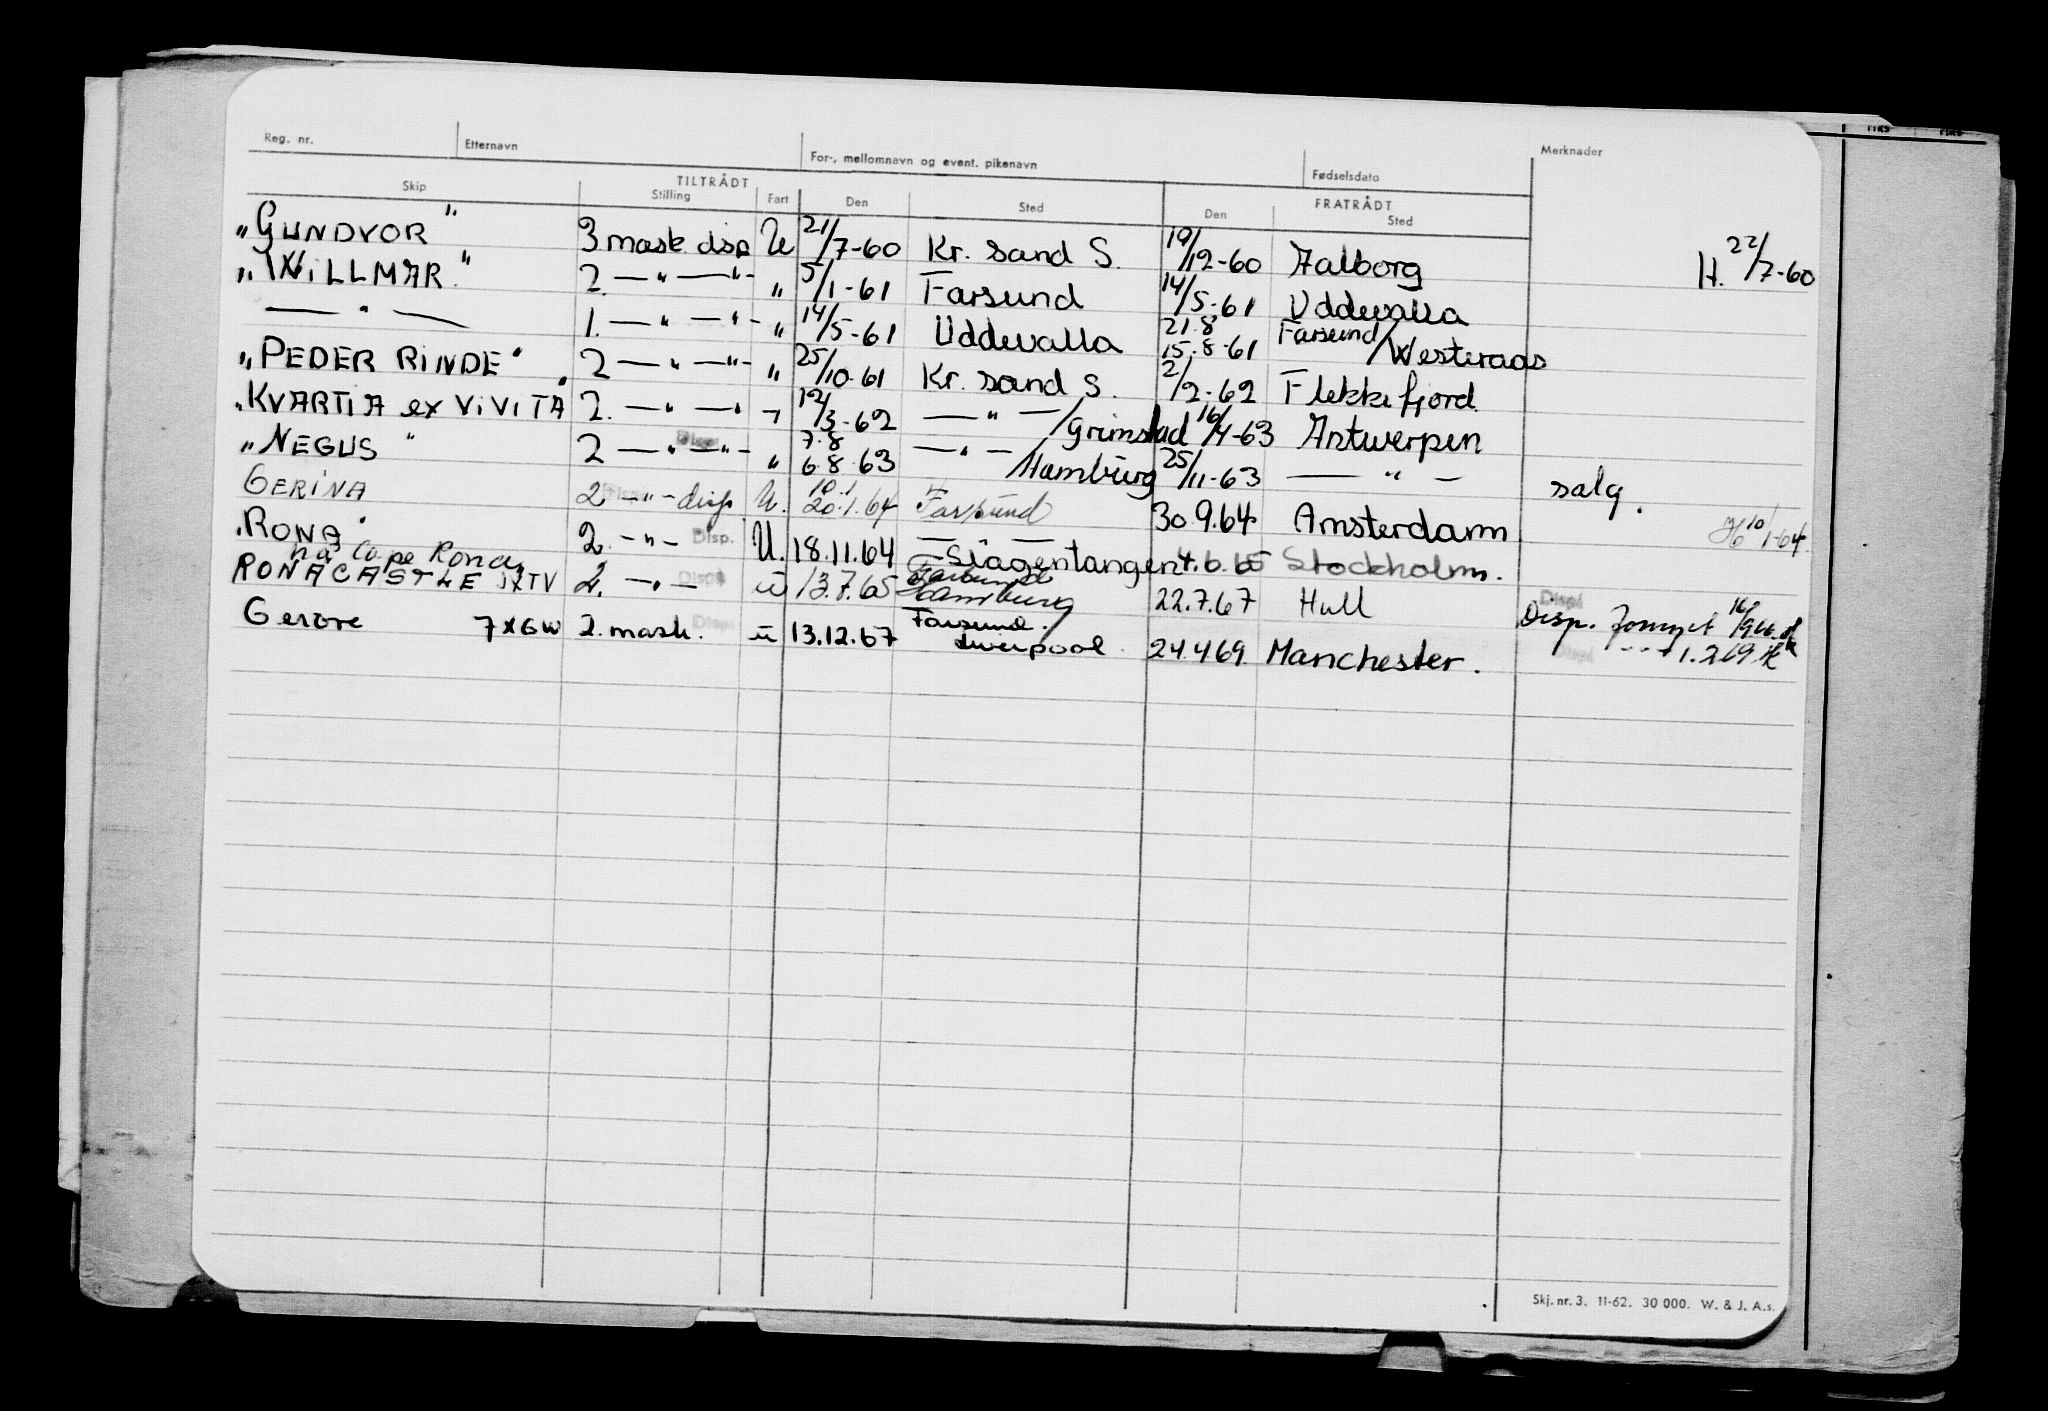 Reg. nr. Etternavn For-, mellomnavn og event. pikenavn Fødselsdato Merknader
TILTRÅDT FRATRÅDT
Skip Stilling Fart Den Sted Den Sted
„GUNDVOR" 3 mask disp U 21/7-60 Kr. sand S. 19/12-60 Aalborg H. 22/7-60
„WILLMAR" 2. — " — " — " 5/1-61 Farsund 14/5-61 Uddevalla
— " — 1. — " — " — " 14/5-61 Uddevalla 21.8 15.8-61 Farsund/Westeraas
„PEDER RINDE" 2 — " — " — " 25/10-61 Kr. sand S. 2/2-62 Flekkefjord
„KVARTIA ex VIVITA" 2. — " — " 3-62 — " — /Grimstad 16/4-63 Antwerpen
„NEGUS" 2 — " — " — " 7.8 6.8.63 — " — /Hamburg 25/11-63 — " — salg.
GERINA 2. — " — disp U. 10.1 20.1.64 Farsund 30.9.64 Amsterdam 10/1-64
„RONA" 2. — " — Disp. U. 18.11.64 — " — Slagentangen 4.6.65 Stockholm.
nå Cape Rona
RONACASTLE JXTV 2. — " — Disp ü 13.7.65 Farsund Hamburg 22.7.67 Hull Disp. fornyet
Gerore 7XGW 2. mask. ü 13.12.67 Farsund. Liverpool 24.4.69 Manchester. — " — 1.2.69
Skj. nr. 3. 11-62. 30 000. W. & J. A.s.